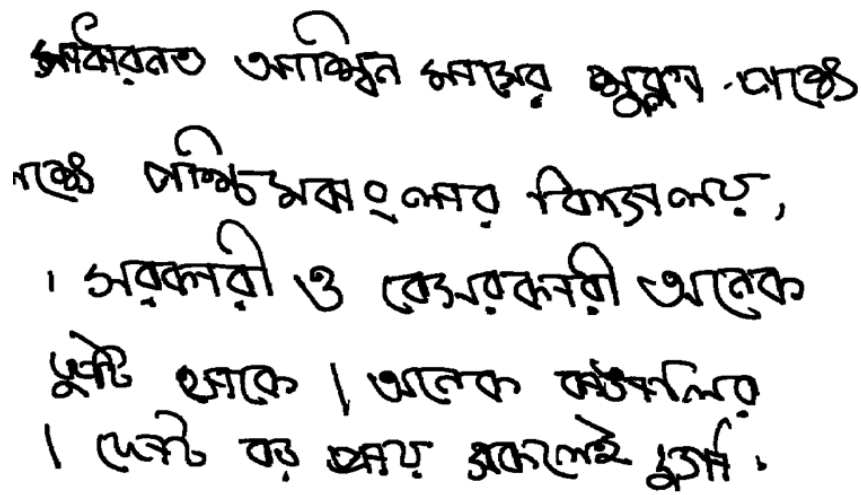 সাধারনত আশ্বিন মাসের শুক্লা পক্ষে
পক্ষে পশ্চিমবাংলার বিদ্যালয়,
। সরকারী ও বেসরকারী অনেক
ছুটি থাকে । অনেক বাঙালির
। ছোট বড় প্রায় সকলেই দুর্গা